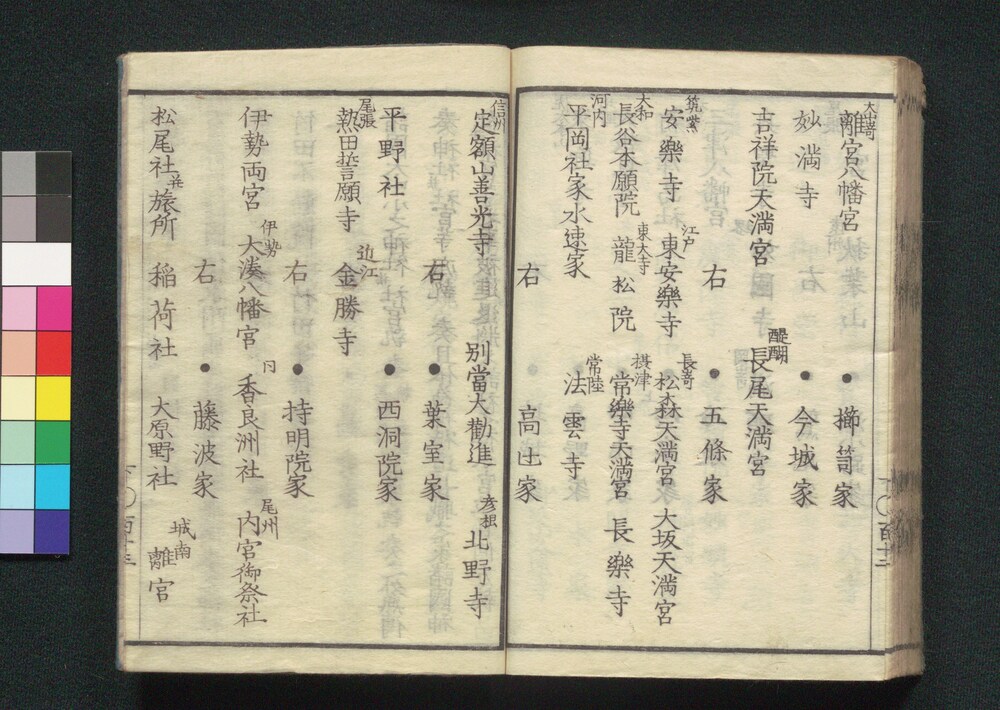 大山崎 離宮八幡宮 ● 櫛笥家
妙満寺 ● 今城家
吉祥院天満宮 醍醐 長尾天満宮
右 ● 五條家
筑紫 安樂寺 江戸 東安樂寺 長嵜 松森天満宮 大坂天満宮
大和 長谷本願院 東大寺 龍松院 摂津 常樂寺天満宮 長樂寺
河内 平岡社家水速家 常陸 法雲寺
右 ● 高辻家
百十二
信州 定額山善光寺 別當大勸進 彦根 北野寺
右 ● 葉室家
平野社 ● 西洞院家
尾張 熱田誓願寺 近江 金勝寺
右 ● 持明院家
伊勢両宮 伊勢 大湊八幡宮 同 香良洲社 尾州 内宮御祭社
右 ● 藤波家
松尾社并旅所 稲荷社 大原野社 城南 離宮
下 〇 百十三